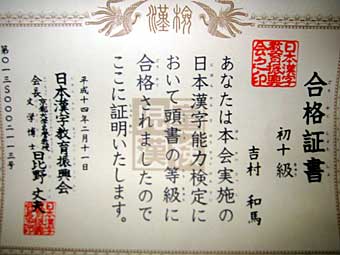 漢検
合格証書
初十級
吉村 和馬
あなたは本会実施の
日本漢字能力検定に
おいて頭書の等級に
合格されましたので
ここに証明いたします。
平成十四年二月十一日
日本漢字教育振興会
会長 京都大学名誉教授 文学博士 日比野 丈夫
日本漢字教育振興会之印